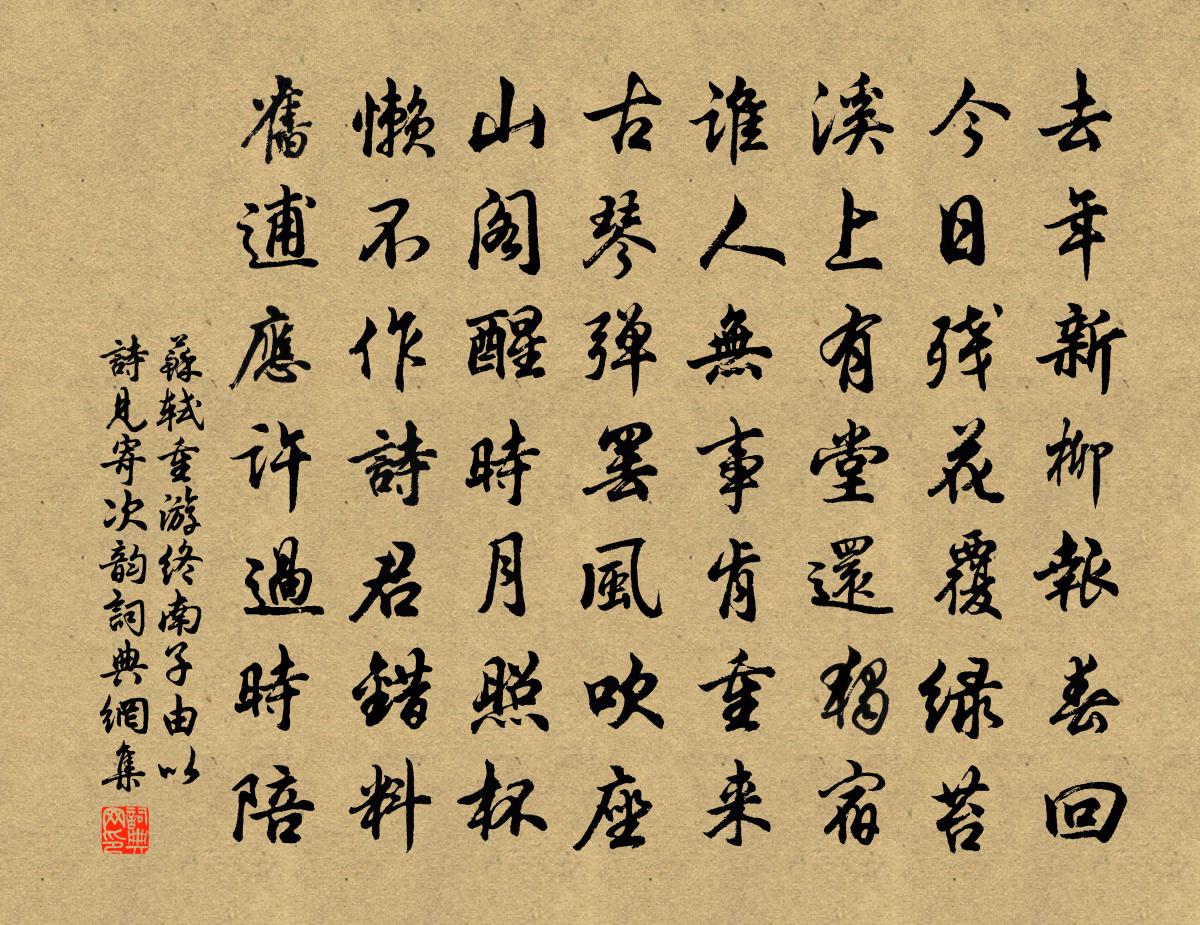 去年新柳報春回
今日残花覆緑苔
溪上有堂還獨宿
誰人無事肯重来
古琴弹罢風吹座
山阁醒時月照杯
懶不作詩君錯料
舊逋應許過時陪
蘇軾重游终南子由以
詩見寄次韵詞典網集
詞典网印